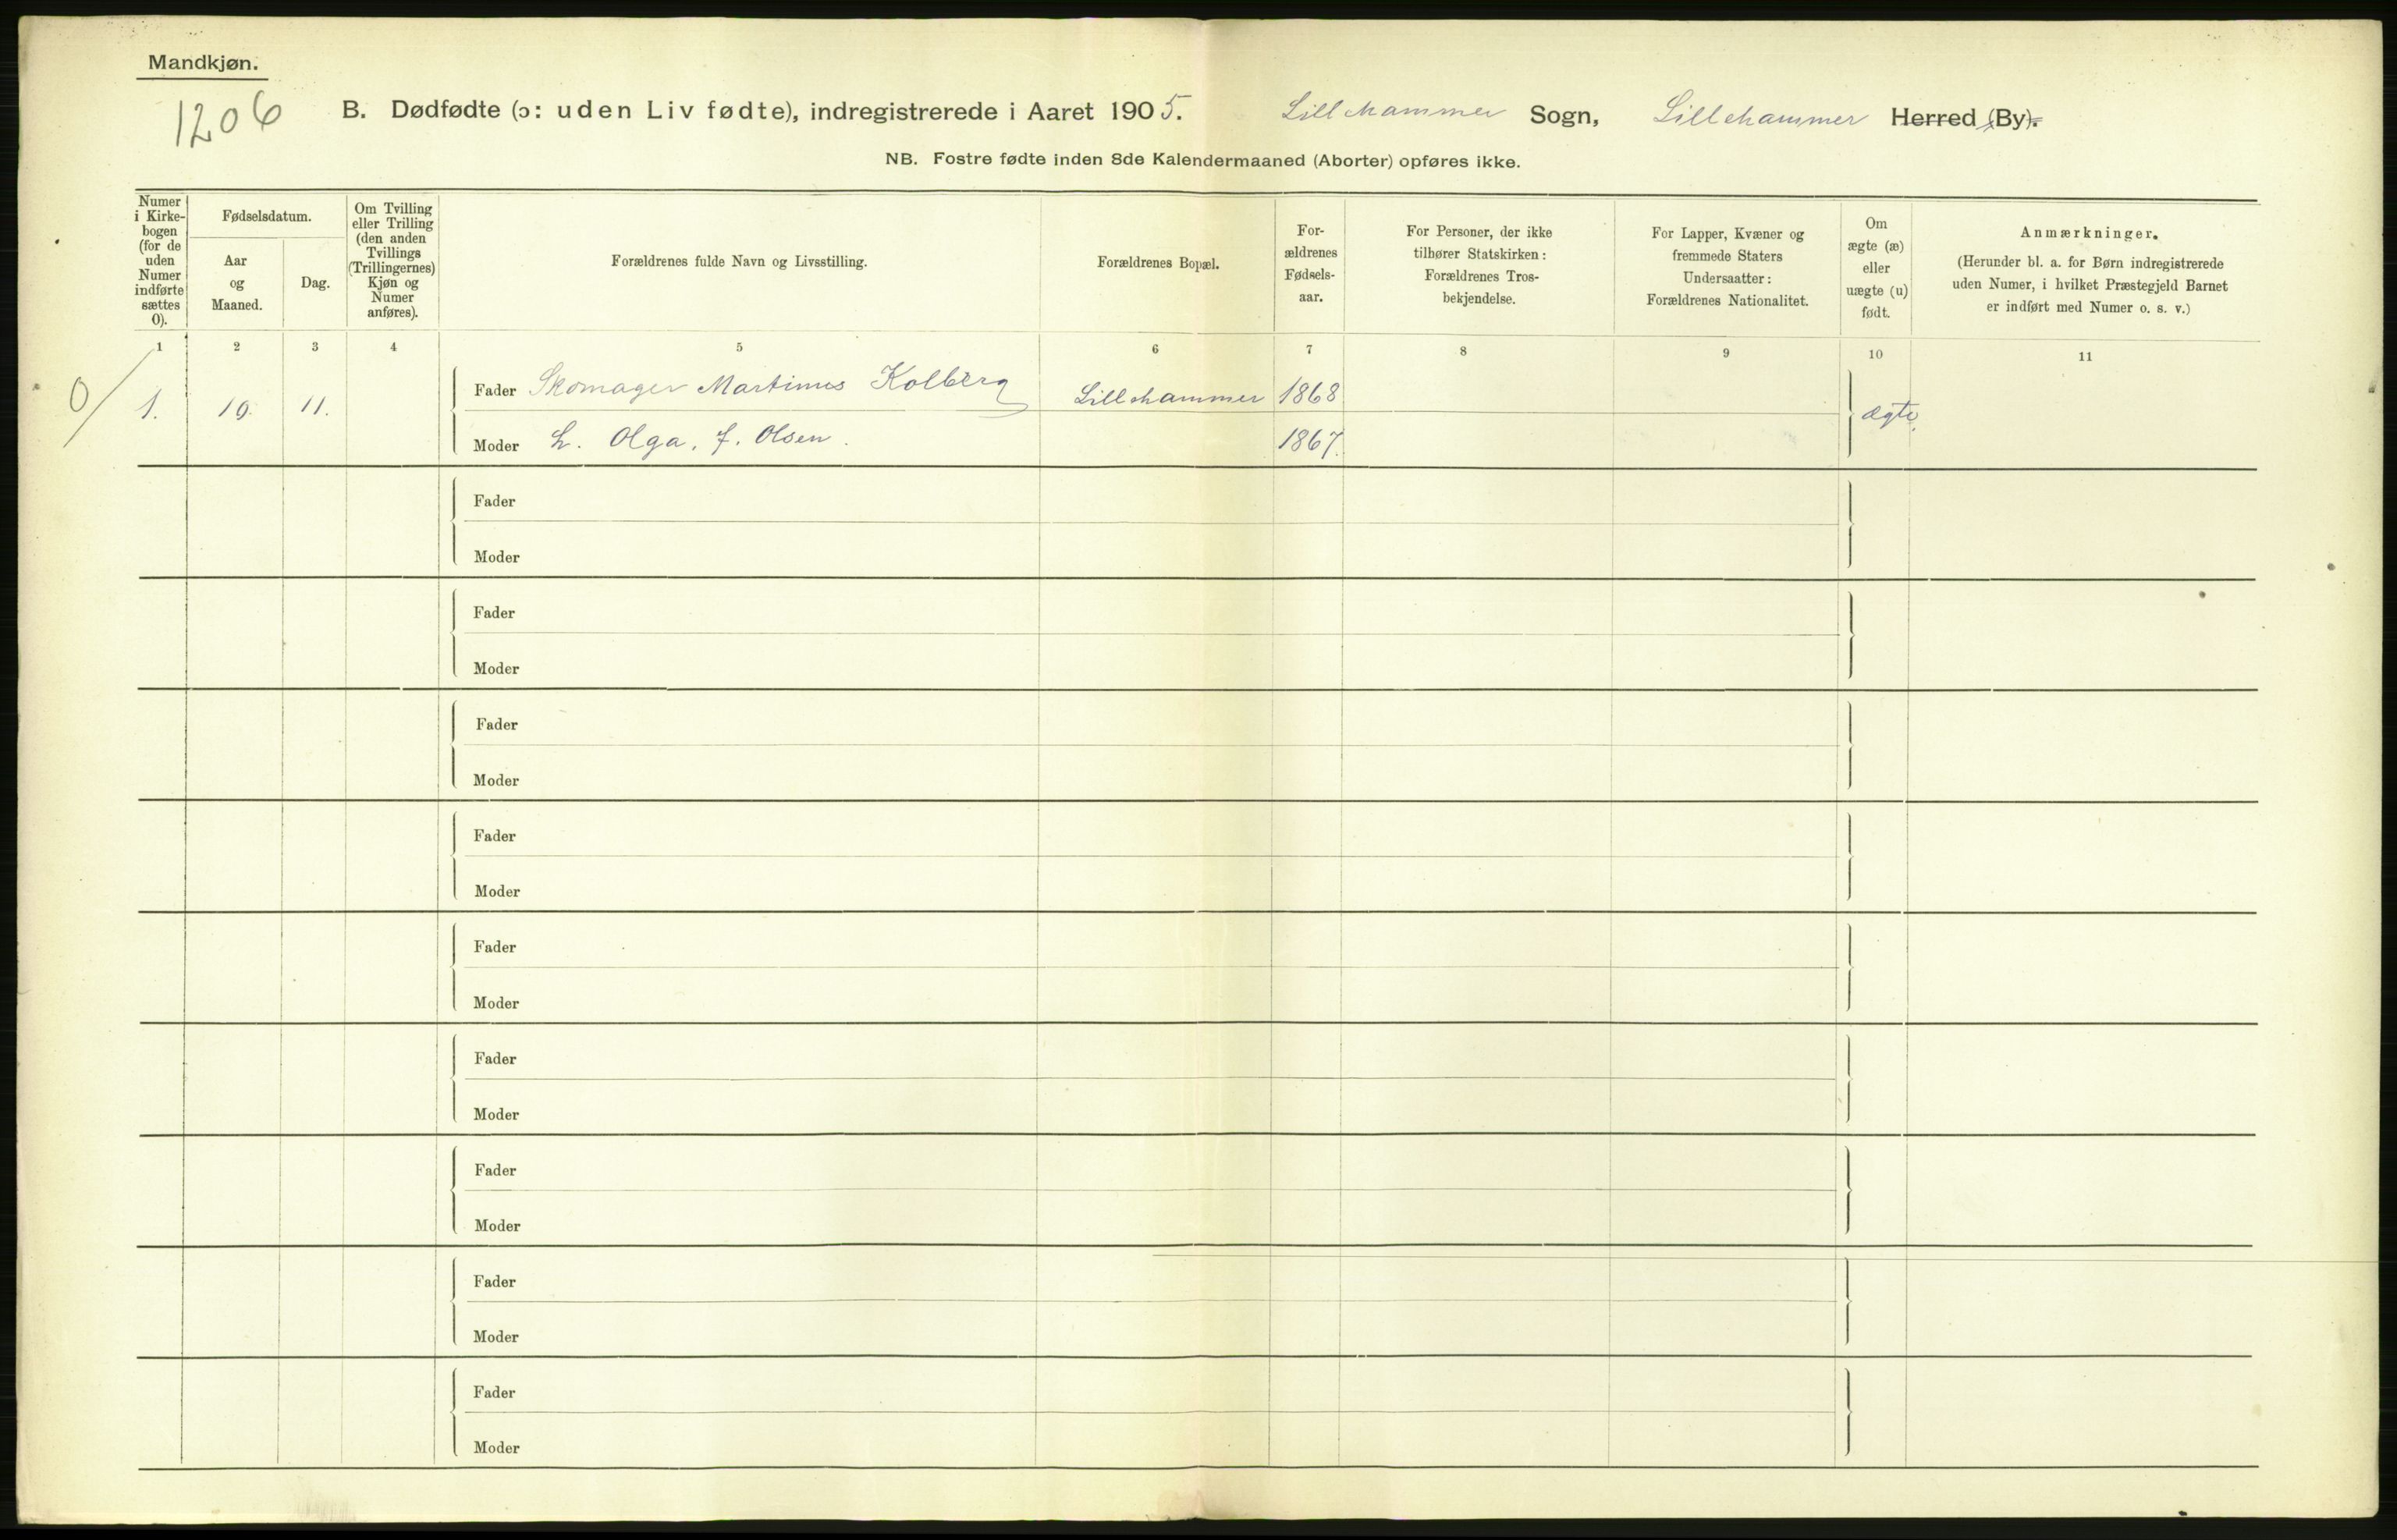 Mandkjøn.
1206
B. Dødfødte (ɔ: uden Liv fødte), indregistrerede i Aaret 1905. Lillehammer Sogn, Lillehammer Herred (By).
NB. Fostre fødte inden 8de Kalendermaaned (Aborter) opføres ikke.
Numer i Kirke-bogen (for de uden Numer indførte sættes 0).
Fødselsdatum.
Aar og Maaned.
Dag.
Om Tvilling eller Trilling (den anden Tvillings (Trillingernes) Kjøn og Numer anføres).
Forældrenes fulde Navn og Livsstilling.
Forældrenes Bopæl.
For-ældrenes Fødsels-aar.
For Personer, der ikke tilhører Statskirken: Forældrenes Tros-bekjendelse.
For Lapper, Kvæner og fremmede Staters Undersaatter: Forældrenes Nationalitet.
Om ægte (æ) eller uægte (u) født.
Anmærkninger.
(Herunder bl. a. for Børn indregistrerede uden Numer, i hvilket Præstegjeld Barnet er indført med Numer o. s. v.)
1 2 3 4 5 6 7 8 9 10 11
0/ 1. 10. 11. Fader Skomager Martinus Kolberg Lillehammer 1868 ægte
Moder h. Olga, f. Olsen. 1867.
Fader
Moder
Fader
Moder
Fader
Moder
Fader
Moder
Fader
Moder
Fader
Moder
Fader
Moder
Fader
Moder
Fader
Moder